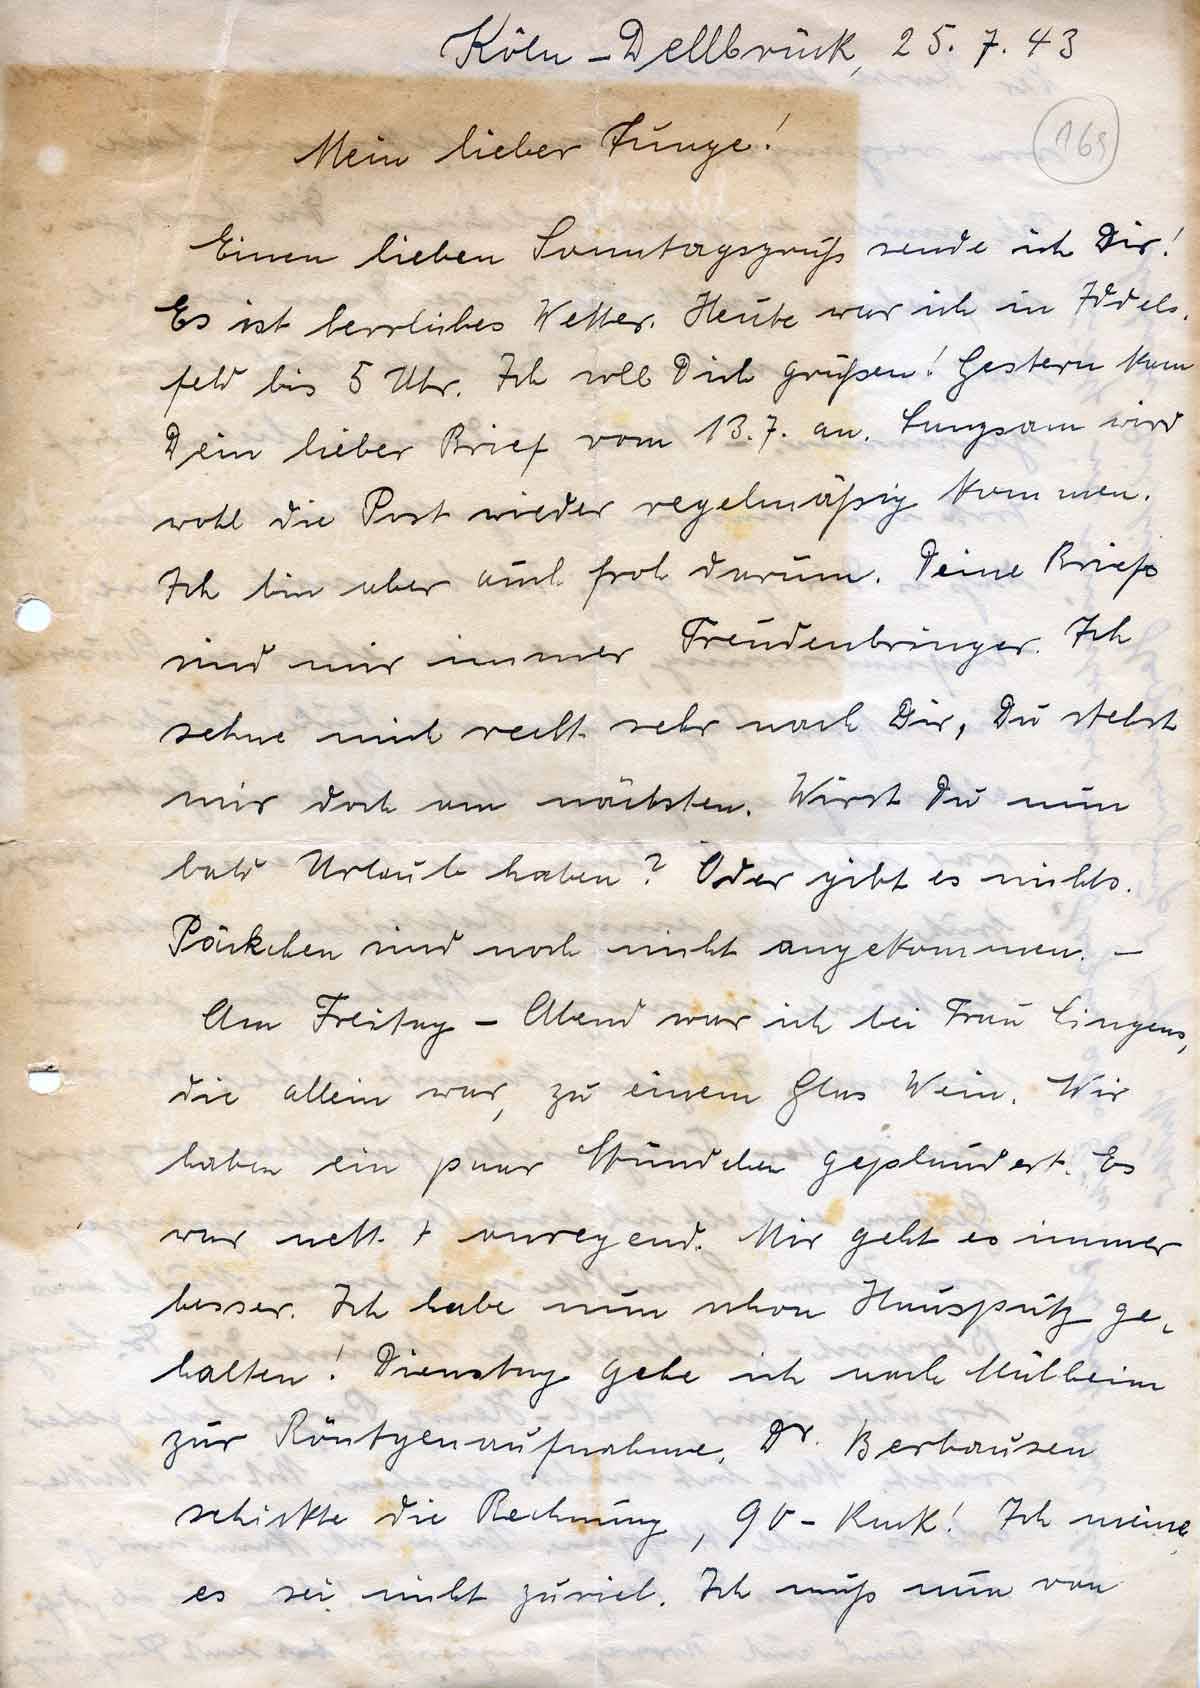 Köln-Dellbrück, 25.7.43
169
Mein lieber Junge!
Einen lieben Sonntagsgruß sende ich Dir!
Es ist herrliches Wetter. Heute war ich in Iddels-
feld bis 5 Uhr. Ich soll Dich grüßen! Gestern kam
Dein lieber Brief vom 13.7. an. Langsam wird
wohl die Post wieder regelmäßig kommen.
Ich bin aber auch froh darum. Deine Briefe
sind mir immer Freudenbringer. Ich
sehne mich recht sehr nach Dir, Du stehst
mir doch am nächsten. Wirst Du nun
bald Urlaub haben? Oder gibt es nichts.
Päckchen sind noch nicht angekommen. –
Am Freitag – Abend war ich bei Frau Lingens,
die allein war, zu einem Glas Wein. Wir
haben ein paar Stündchen geplaudert. Es
war nett + anregend. Mir geht es immer
besser. Ich habe nun schon Hausputz ge-
halten! Dienstag gehe ich nach Mülheim
zur Röntgenaufnahme. Dr. Berhausen
schickte die Rechnung, 90 – Rmk! Ich meine,
es sei nicht zuviel. Ich muß nun von